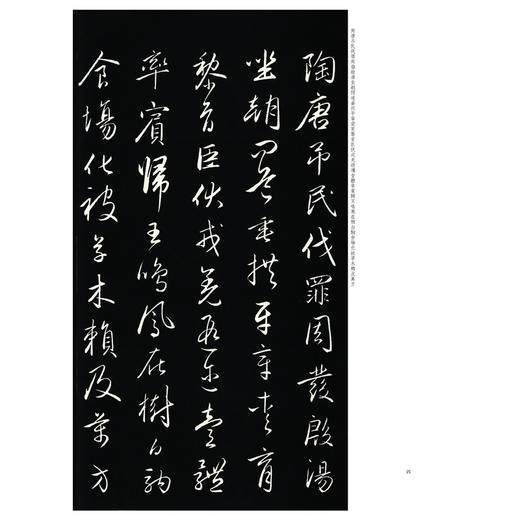 陶唐吊民伐罪周發殷湯坐朝問道垂拱平章愛育黎首臣伏戎羌遐邇壹體率賓歸王鳴鳳在樹白駒食場化被草木賴及萬方
陶唐吊民伐罪周發殷湯
坐朝問道垂拱平章愛育
黎首臣伏戎羌遐邇壹體
率賓歸王鳴鳳在樹白駒
食場化被草木賴及萬方